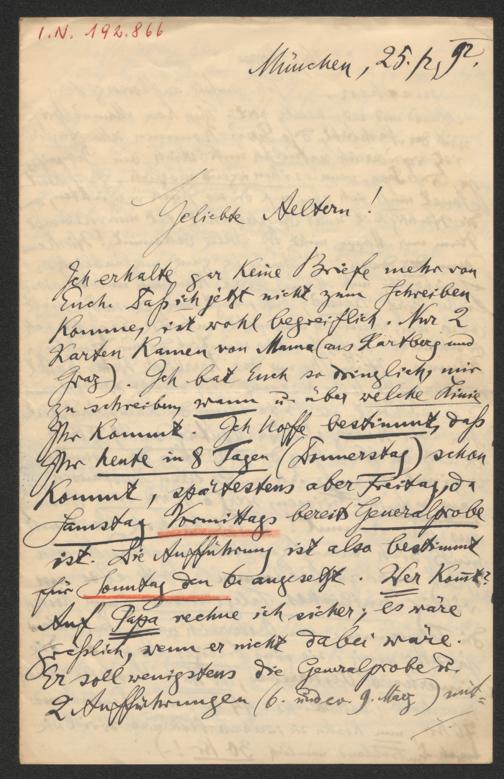 I.N. 192.866
München, 25./2. 92.
Geliebte Aeltern!
Ich erhalte gar keine Briefe mehr von
Euch. Daß ich jetzt nicht zum Schreiben
komme, ist wohl begreiflich. Nur 2
Karten kamen von Mama (aus Hartberg und
Graz). Ich bat Euch so dringlich, mir
zu schreiben, wann u. über welche Linie
Ihr kommt. Ich hoffe bestimmt, daß
Ihr heute in 8 Tagen (Donnerstag) schon
kommt, spätestens aber Freitag, da
Samstag Vormittags bereits Generalprobe
ist. Die Aufführung ist also bestimmt
für Sonntag den 6. angesetzt. Wer kommt?
Auf Papa rechne ich sicher; es wäre
häßlich, wenn er nicht dabei wäre.
Er soll wenigstens die Generalprobe u.
2 Aufführungen (6. und ev. 9. März) mit-